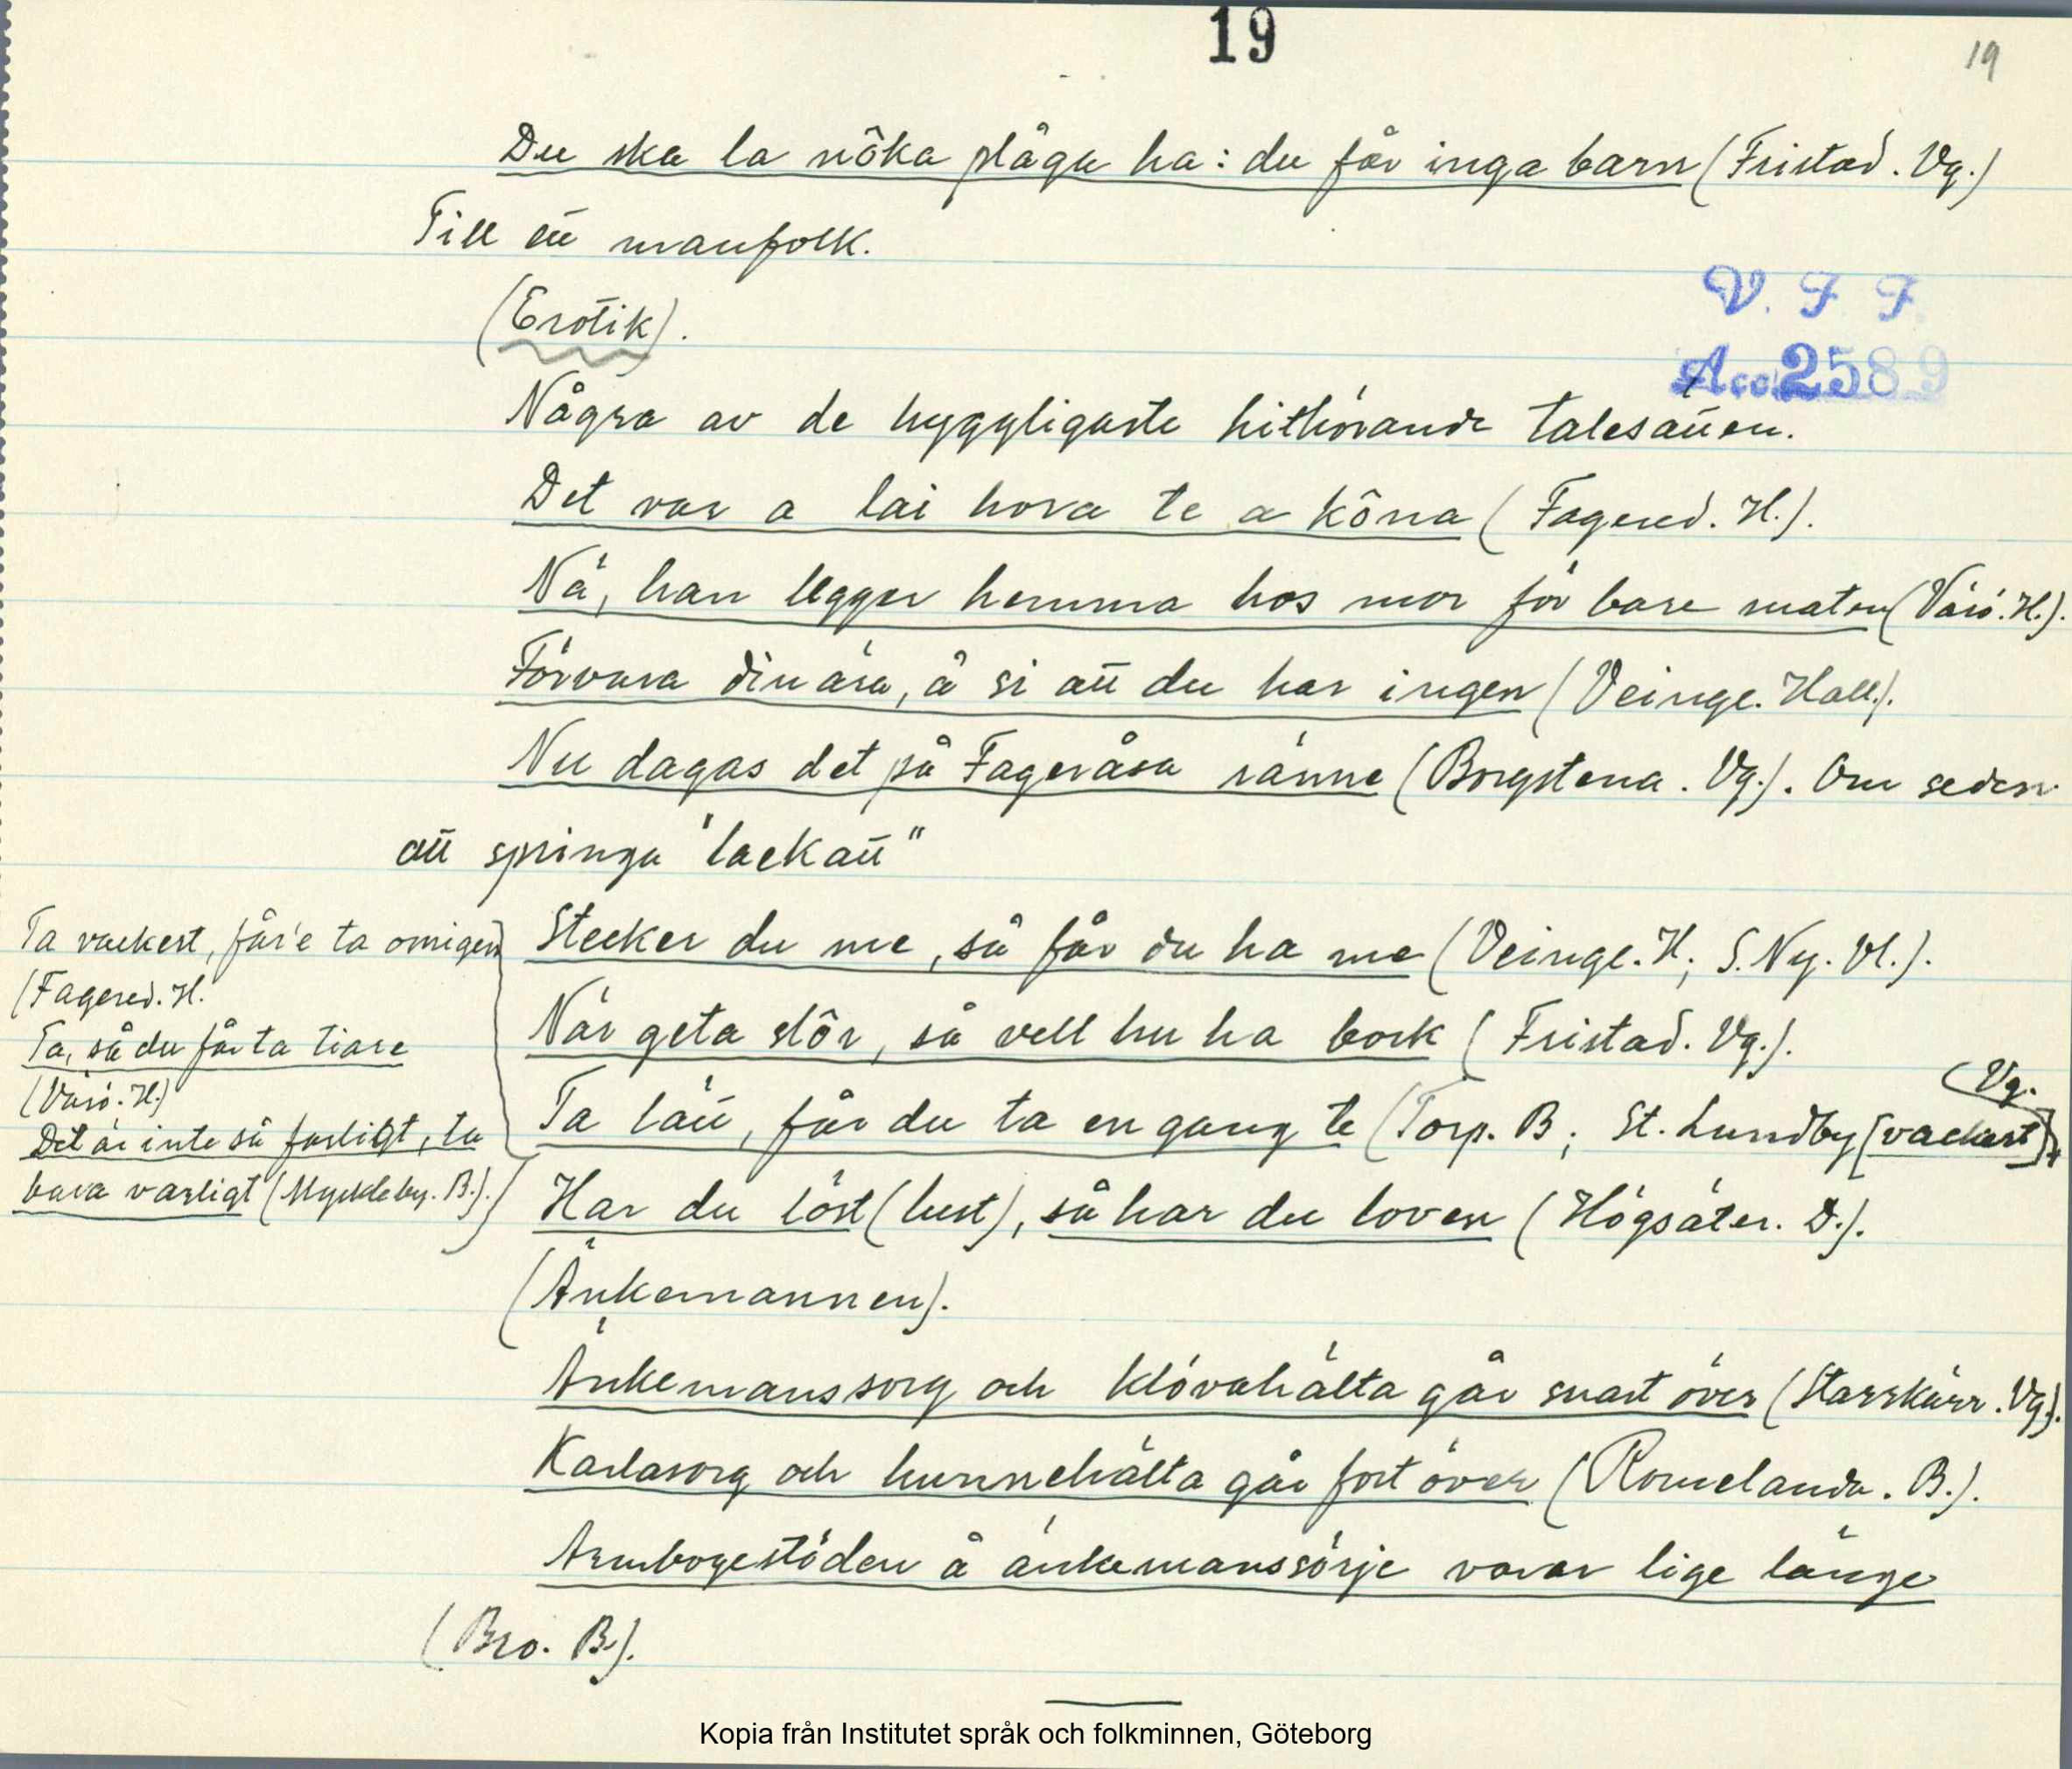 19
19
Du ska la nôka plåga ha: du får inga barn (Fristad. Vg.)
Till ett manfolk.
(Erotik).
V. F. F.
Acc. 2589
Några av de hyggligaste hithörande talesätten.
Det var a lai hora te a kôna (Fagered. H.).
Nä, han legger hemma hos mor för bare maten (Värö. H.).
Förvara din ära, å si att du har ingen (Veinge. Hall.).
Nu dagas det på Fageråsa ränne (Borgstena. Vg.). Om seden
att springa "lackatt"
Stecker du me, så får du ha me (Veinge. H; S. Ny. Vl.).
När geta slôr, så vell hu ha bock (Fristad. Vg.).
Ta lätt, får du ta en gang te (Torp. B; St. Lundby [vackert] Vg.).
Ta vackert, får'e ta omigen
(Fagered. H.
Ta, så du får ta tiare
(Värö. H.)
Det är inte så farligt, ta
bara varligt (Myckleby. B.).
Har du löst (lust), så har du loven (Högsäter. D.).
(Änkemannen).
Änkemanssorg och klövahälta går snart över (Starrkärr. Vg.).
Karlasorg och hunnehälta går fort över (Romelanda. B.).
Armbogestöden å änkemanssörje varar lige länge
(Bro. B.).
Kopia från Institutet språk och folkminnen, Göteborg